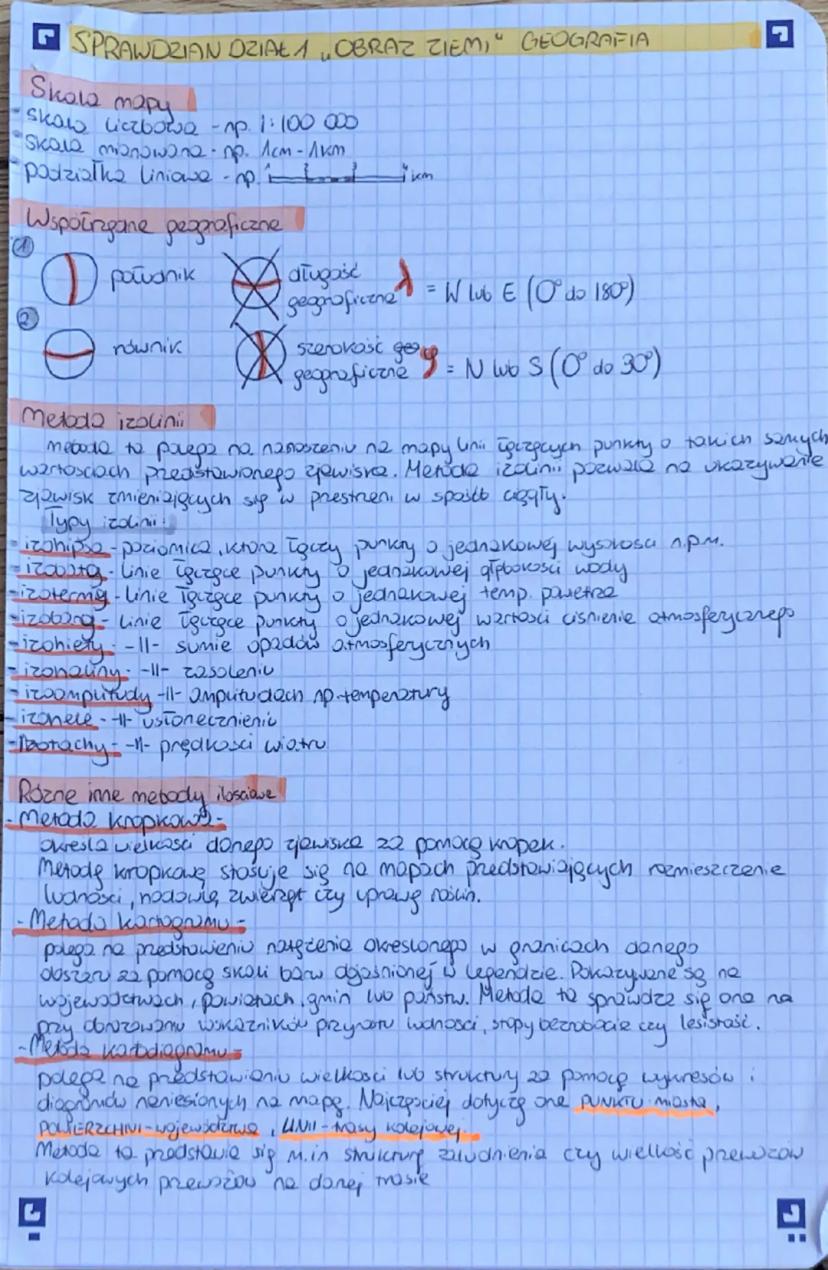 SPRAWDZIAN DZIAŁ 1 „OBRAZ ZIEMI" GEOGRAFIA
Skala mapy
- skala liczbowa - np. 1:100 000
- skala mianowana - np. 1cm - 1km
- podziałka liniowa - np. km
Współrzędne geograficzne
① południk długość
geograficzna λ = W lub E (0° do 180°)
② równik szerokość geo
geograficzna φ = N lub S (0° do 30°)
Metoda izolinii
metoda ta polega na nanoszeniu na mapy linii łączących punkty o takich samych
wartościach przedstawionego zjawiska. Metoda izolinii pozwala na ukazywanie
zjawisk zmieniających się w prestreni w sposób ciągły.
Typy izolinii:
- izohipsa - poziomica, która łączy punkty o jednakowej wysokości n.p.m.
- izobatą - linie łączące punkty o jednakowej głębokości wody
- izotermą - linie łączące punkty o jednakowej temp. powietrza
- izobarą - linie łączące punkty o jednakowej wartości ciśnienie atmosferycznego
- izohiety - -||- sumie opadów atmosferycznych
- izohaliny - -||- zasoleniu
- izoamplitudy -||- amplitudach np. temperatury
- izohele - -||- usłonecznieniu
- Izotachy - -||- prędkości wiatru
Różne inne metody ilościowe
- Metoda kropkowa -
określa wielkości danego zjawiska za pomocą kropek.
Metodę kropkową stosuje się na mapach predstawiających rozmieszczenie
ludności, hodowlę zwierząt czy uprawę roślin.
- Metoda kartogramu -
polega na predstawieniu natężenia określonego w granicach danego
obszaru za pomocą skali barw objaśnionej w legendzie. Pokazywane są na
województwach, powiatach, gmin lub państw. Metoda ta sprawdza się ona na
przy obrazowaniu wskaźników przyrostu ludności, stopy bezrobocia czy lesistość.
- Metoda kartodiagramu -
polega na predstawieniu wielkości lub struktury za pomocą wykresów i
diagramów naniesionych na mapę. Najczęściej dotyczą one PUNKTU - miasta,
POWIERZCHNI - województwa, LINII - trasy kolejowej.
Metoda ta predstawia się m.in strukturę zaludnienia czy wielkość przewozów
kolejowych przewozów na danej trasie